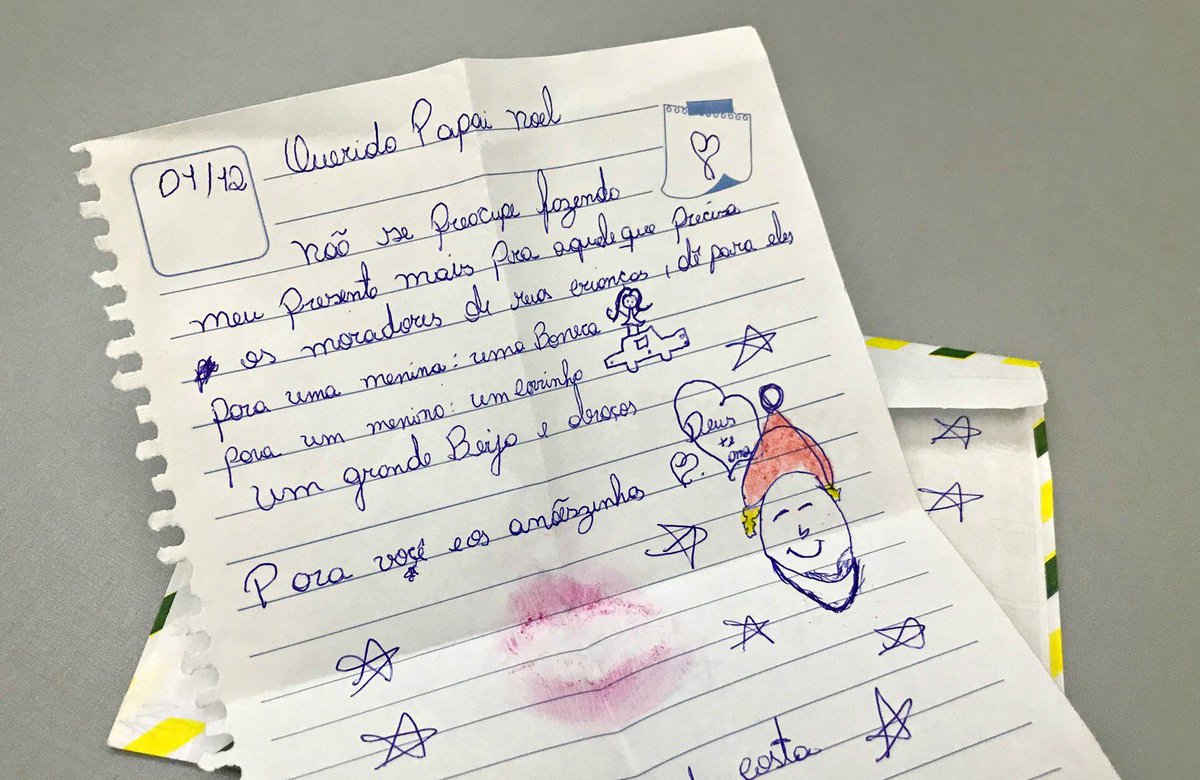 Querido Papai Noel
01/12
não se preocupe fazendo
meu presente mais pra aquele que precisa
os moradores de rua crianças, dê para eles
para uma menina: uma Boneca
para um menino: um carrinho
um grande Beijo e abraços
Para você e os anõeszinhos
Deus
te
ama
costa